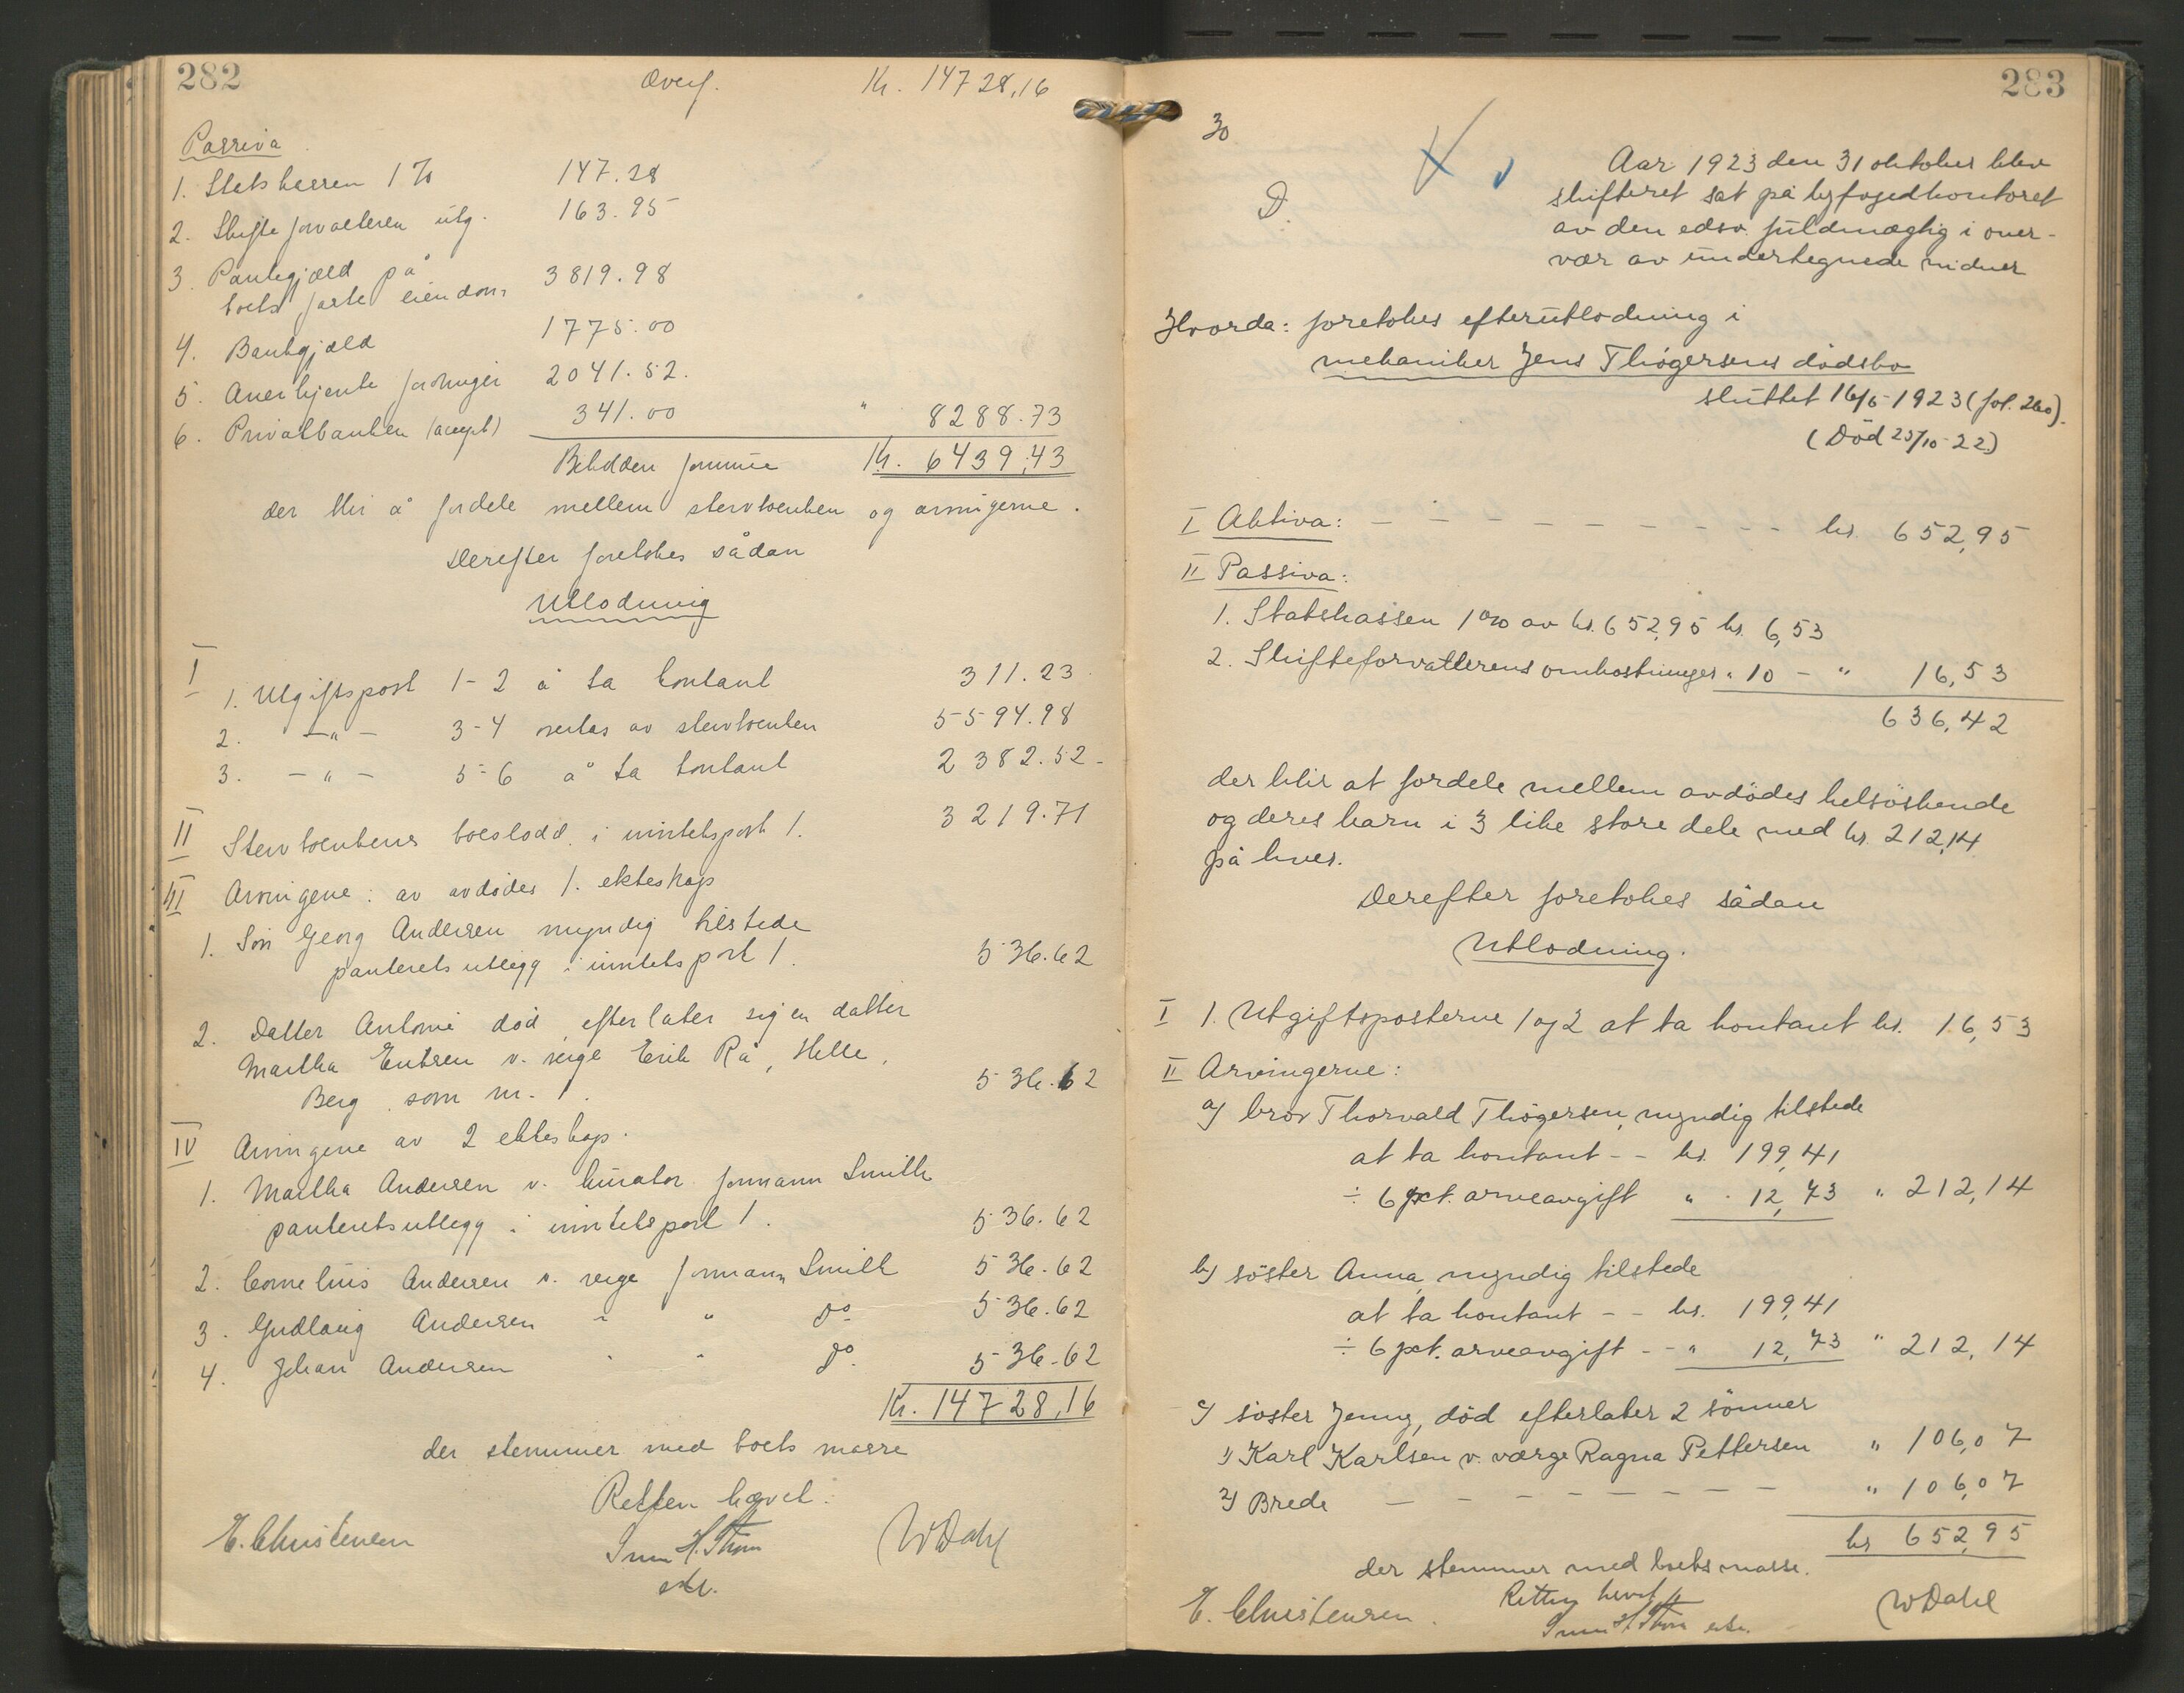 282
Overf. Kr. 14728,16
Passiva
1. Statskassen 1% 147.28
2. Skifteforvalteren utg. 163.95
3. Pantegjæld på
boets faste eiendom 3819.98
4. Bankgjæld 1775.00
5. Anerkjente fordringer 2041.52.
6. Privatbanken (accept) 341.00 " 8288.73
Beholden formue Kr. 6439,43
der blir å fordele mellem stervboenken og arvingerne.
Derefter foretokes sådan
Utlodning
I
1. Utgiftspost 1-2 å ta kontant 311.23
2. -"- 3-4 overtas av stervboenken 5594.98
3. -"- 5-6 å ta kontant 2382.52-
II Stervboenkens boeslodd i inntektspost 1. 3219.71
III Arvingene: av avdødes 1. ekteskap
1. Søn Georg Andersen myndig tilstede
panterets utlegg i inntektspost 1. 536.62
2. Datter Antonie død, efterlater sig en datter
Martha Entsen v. verge Erik Rå, Helle,
Berg som nr. 1. 536.62
IV Arvingene av 2 ekteskap.
1. Martha Andersen v. kurator formann Smith
panteretsutlegg i inntektspost 1. 536.62
2. Cornelius Andersen v. verge formann Smith 536.62
3. Gudlaug Andersen " " do 536.62
4. Johan Andersen " " do. 536.62
Kr. 14728,16
der stemmer med boets masse
Retten hævet.
E. Christensen H. Thom WDahl
283
30
D.
Aar 1923 den 31 oktober blev
skifteret sat på byfogedkontoret
av den edsv. fuldmægtig i over-
vær av undertegnede vidner
Hvorda: foretokes efterutlodning i
mekaniker Jens Thøgersens dødsbo
sluttet 16/5-1923 (fol. 260).
(Død 25/10-22)
I Aktiva: - - - - - - - - - - kr. 652,95
II Passiva:
1. Statskassen 1% av kr. 652,95 kr. 6,53
2. Skifteforvalterens omkostninger " 10 - " 16,53
636,42
der blir at fordele mellem avdødes helsøskende
og deres barn i 3 like store dele med kr. 212,14
på hver.
Derefter foretokes sådan
Utlodning.
I 1. Utgiftsposterne 1 og 2 at ta kontant kr. 16,53
II Arvingerne:
a) bror Thorvald Thøgersen, myndig tilstede
at ta kontant - - kr. 199,41
÷ 6 pct. arveavgift " 12,73 " 212,14
b) søster Anna, myndig tilstede
at ta kontant - - kr. 199,41
÷ 6 pct. arveavgift - - " 12,73 " 212,14
c) søster Jenny, død efterlater 2 sønner
1) Karl Karlsen v. værge Ragna Pettersen " 106,07
2) Brede - - - - - - - - " 106,07
kr 652,95
der stemmer med boets masse.
E. Christensen. Retten hævet WDahl
H. Thom